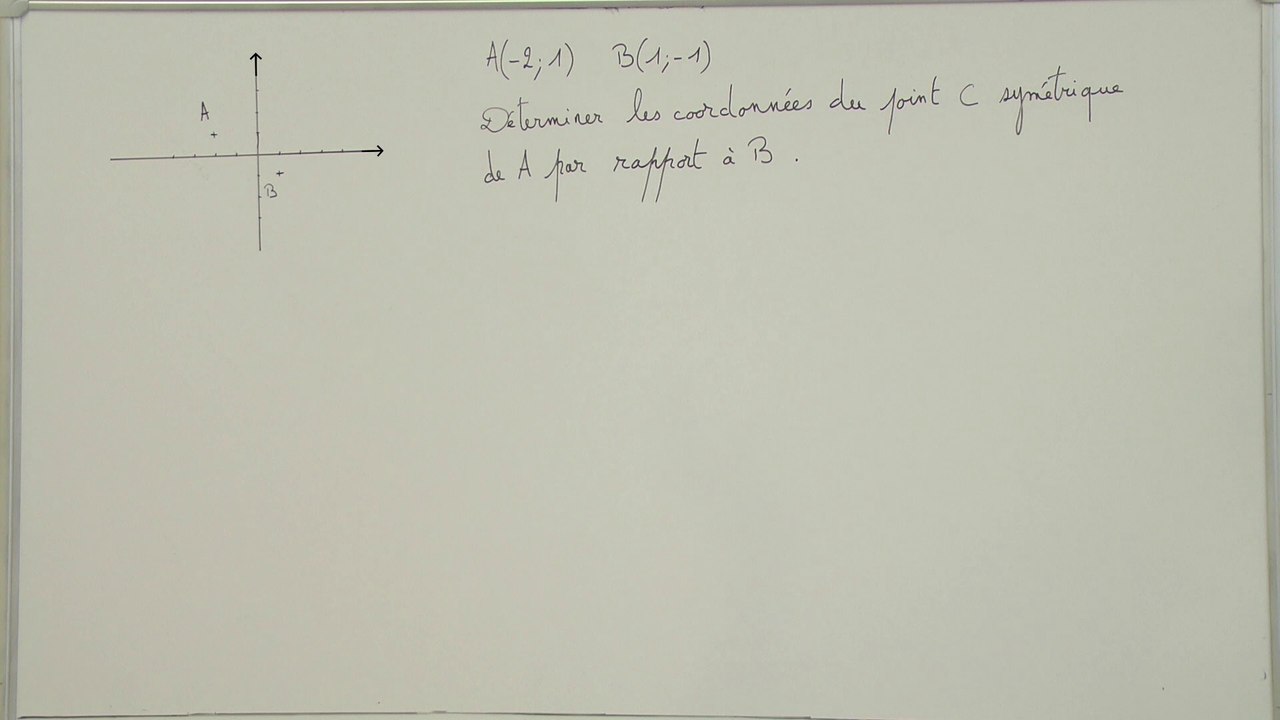 A(-2;1) B(1;-1)
Déterminer les coordonnées du point C symétrique
de A par rapport à B.
A
B